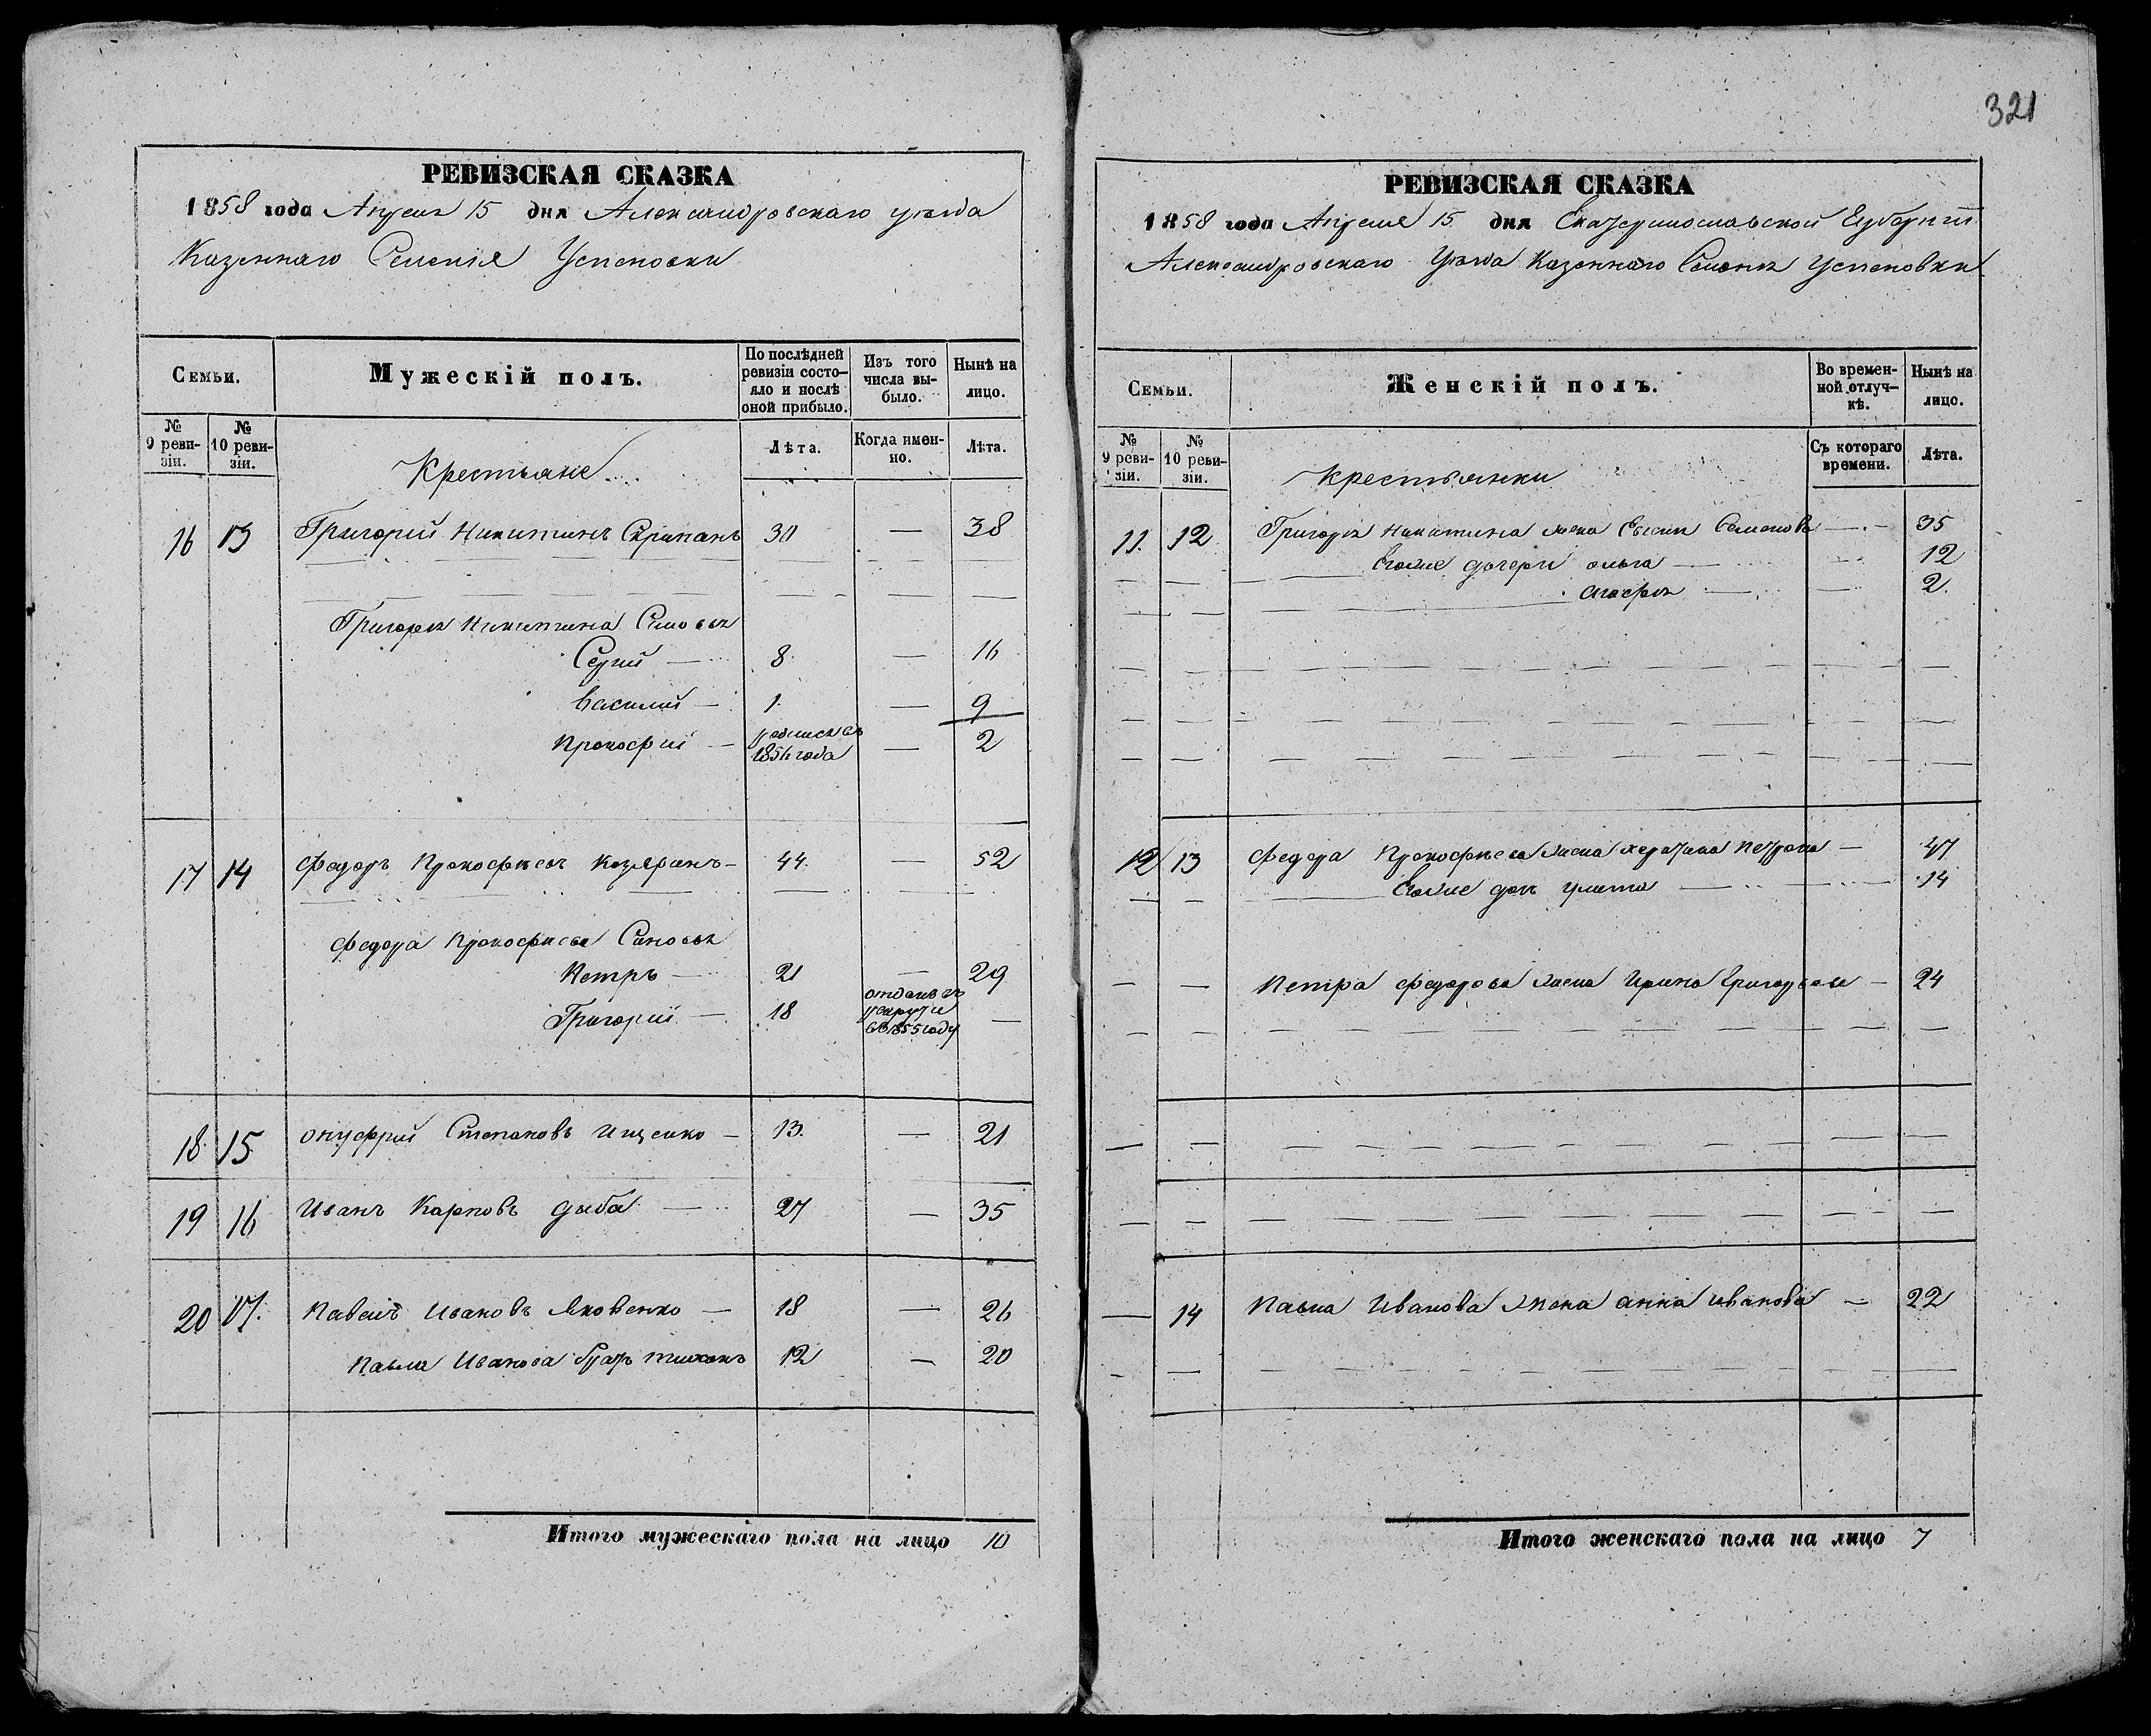 321
РЕВИЗСКАЯ СКАЗКА
1858 года Апреля 15 дня Александровскаго уезда
Казеннаго Селенія Успеновки
Семьи.
Мужескій полъ.
По послѣдней ревизіи состояло и послѣ оной прибыло.
Изъ того числа выбыло.
Нынѣ на лицо.
№ 9 ревизіи.
№ 10 ревизіи.
Крестьяне
Лѣта.
Когда именно.
Лѣта.
16 13 Григорий Никитинъ 30 — 38
Григорья Никитина Синовья
Сергий — 8 — 16
Василий — 1 — 9
Прокофий — родился въ 1856 года — 2
17 14 Федоръ Прокофьевъ 44 — 52
Федора Прокофьева Синовья
Петръ — 21 — 29
Григорий — 18 отданъ въ рекруты въ 1855 году —
18 15 Онуфрий Степановъ Ищенко — 13 — 21
19 16 Иванъ Карповъ Дыба — 27 — 35
20 17 Павелъ Ивановъ Яковенко — 18 — 26
Павла Иванова братъ Тихонъ 12 — 20
Итого мужескаго пола на лицо 10
РЕВИЗСКАЯ СКАЗКА
1858 года Апреля 15 дня Екатеринославской Губерніи
Александровскаго Уезда Казеннаго Селенія Успеновки
Семьи.
Женскій полъ.
Во временной отлучкѣ.
Нынѣ на лицо.
№ 9 ревизіи.
№ 10 ревизіи.
крестьянки
Съ котораго времени.
Лѣта.
11 12 Григорья Никитина жена Семенова — 35
Егоже дочери Ольга — 12
Агафья — 2
12 13 Федора Прокофьева жена Петрова — 47
Егоже дочь Улита — 14
Петра Федорова жена Ирина Григорьева — 24
— 14 Павла Иванова жена Анна Иванова — 22
Итого женскаго пола на лицо 7